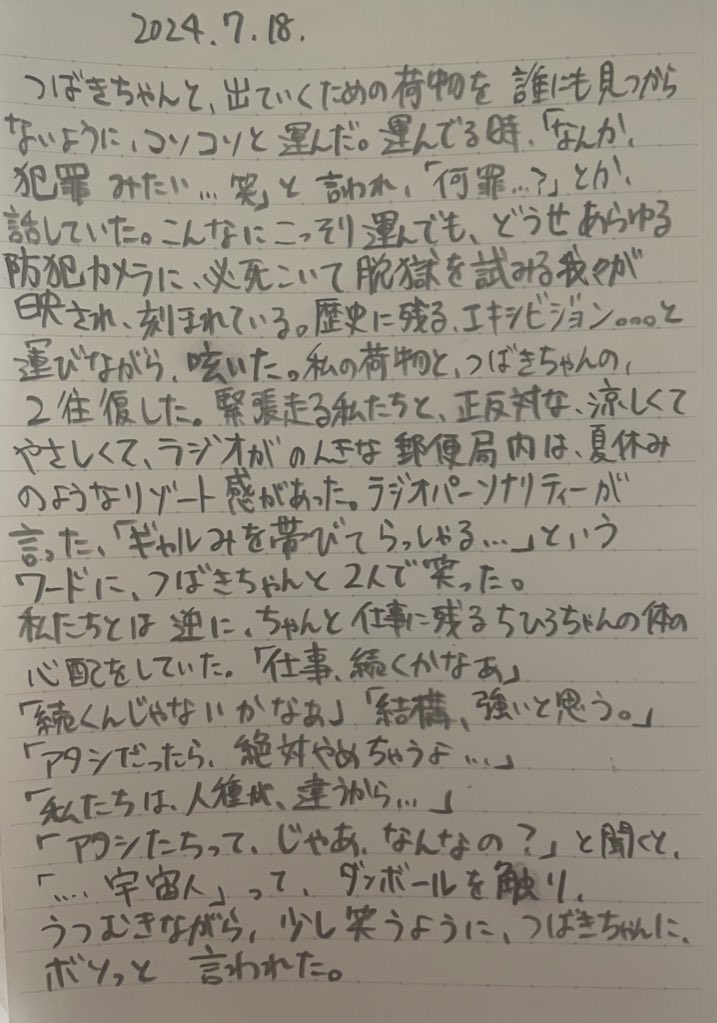 2024.7.18.
つばきちゃんと、出ていくための荷物を 誰にも見つから
ないように、コソコソと 運んだ。運んでる時、「なんか、
犯罪 みたい…笑」と 言われ、「何罪…?」とか、
話していた。こんなにこっそり 運んでも、どうせ あらゆる
防犯カメラに、必死こいて 脱獄を試みる我々が
映され、刻まれている。歴史に残る、エキシビジョン。。。と
運びながら、呟いた。私の荷物と、つばきちゃんの、
2往復した。緊張走る私たちと、正反対な、涼しくて
やさしくて、ラジオがのんきな 郵便局内は、夏休み
のようなリゾート感があった。ラジオパーソナリティーが
言った、「ギャルみを帯びてらっしゃる…」という
ワードに、つばきちゃんと2人で笑った。
私たちとは 逆に、ちゃんと仕事に残るちひろちゃんの体の
心配をしていた。「仕事、続くかなぁ」
「続くんじゃないかなぁ」「結構、強いと思う。」
「アタシだったら、絶対やめちゃうよ…」
「私たちは、人種が、違うから…」
「アタシたちって、じゃあ、なんなの?」と聞くと、
「…. 宇宙人」って、ダンボールを触り、
うつむきながら、少し笑うように、つばきちゃんに、
ボソっと 言われた。